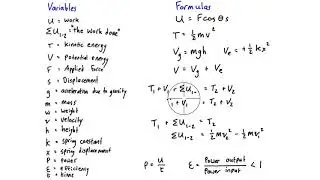 Variables
U = work
ΣU₁₋₂ = "the work done"
T = kinetic energy
V = potential energy
F = Applied Force
s = Displacement
g = acceleration due to gravity
m = mass
w = weight
v = velocity
h = height
k = spring constant
x = spring displacement
P = power
ε = efficiency
t = time
Formulas
U = Fcosθs
T = ½mv²
Vg = mgh Ve = +½kx²
V = Vg + Ve
T₁ + V₁ + ΣU₁₋₂ = T₂ + V₂
T₁ + V₁ = T₂ + V₂
T₁ + ΣU₁₋₂ = T₂
ΣU₁₋₂ = ½mv₂² - ½mv₁²
P = U/t ε = Power output / Power input < 1